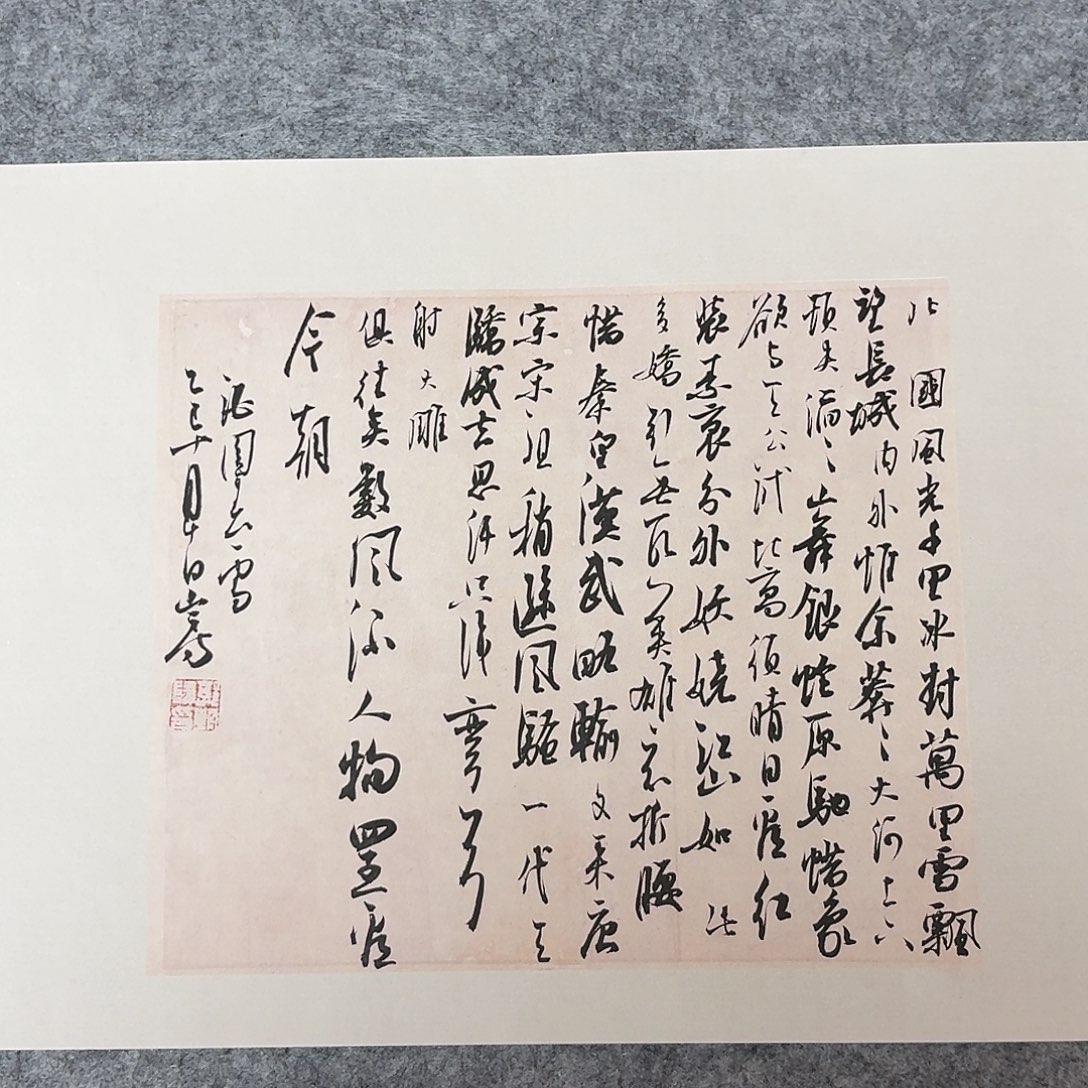 北國風光千里冰封萬里雪飄
望長城内外惟余莽々大河上下
頓失滔々山舞銀蛇原馳蜡象
欲与天公試比高須晴日看紅
裝素裹分外妖嬈江山如此
多嬌引無數英雄竞折腰
惜秦皇漢武略輸文采唐
宗宋祖稍遜風騷一代天
驕成吉思汗只識彎弓
射大雕
俱往矣數風流人物還看
今朝
沁園春雪
乙巳十月十日